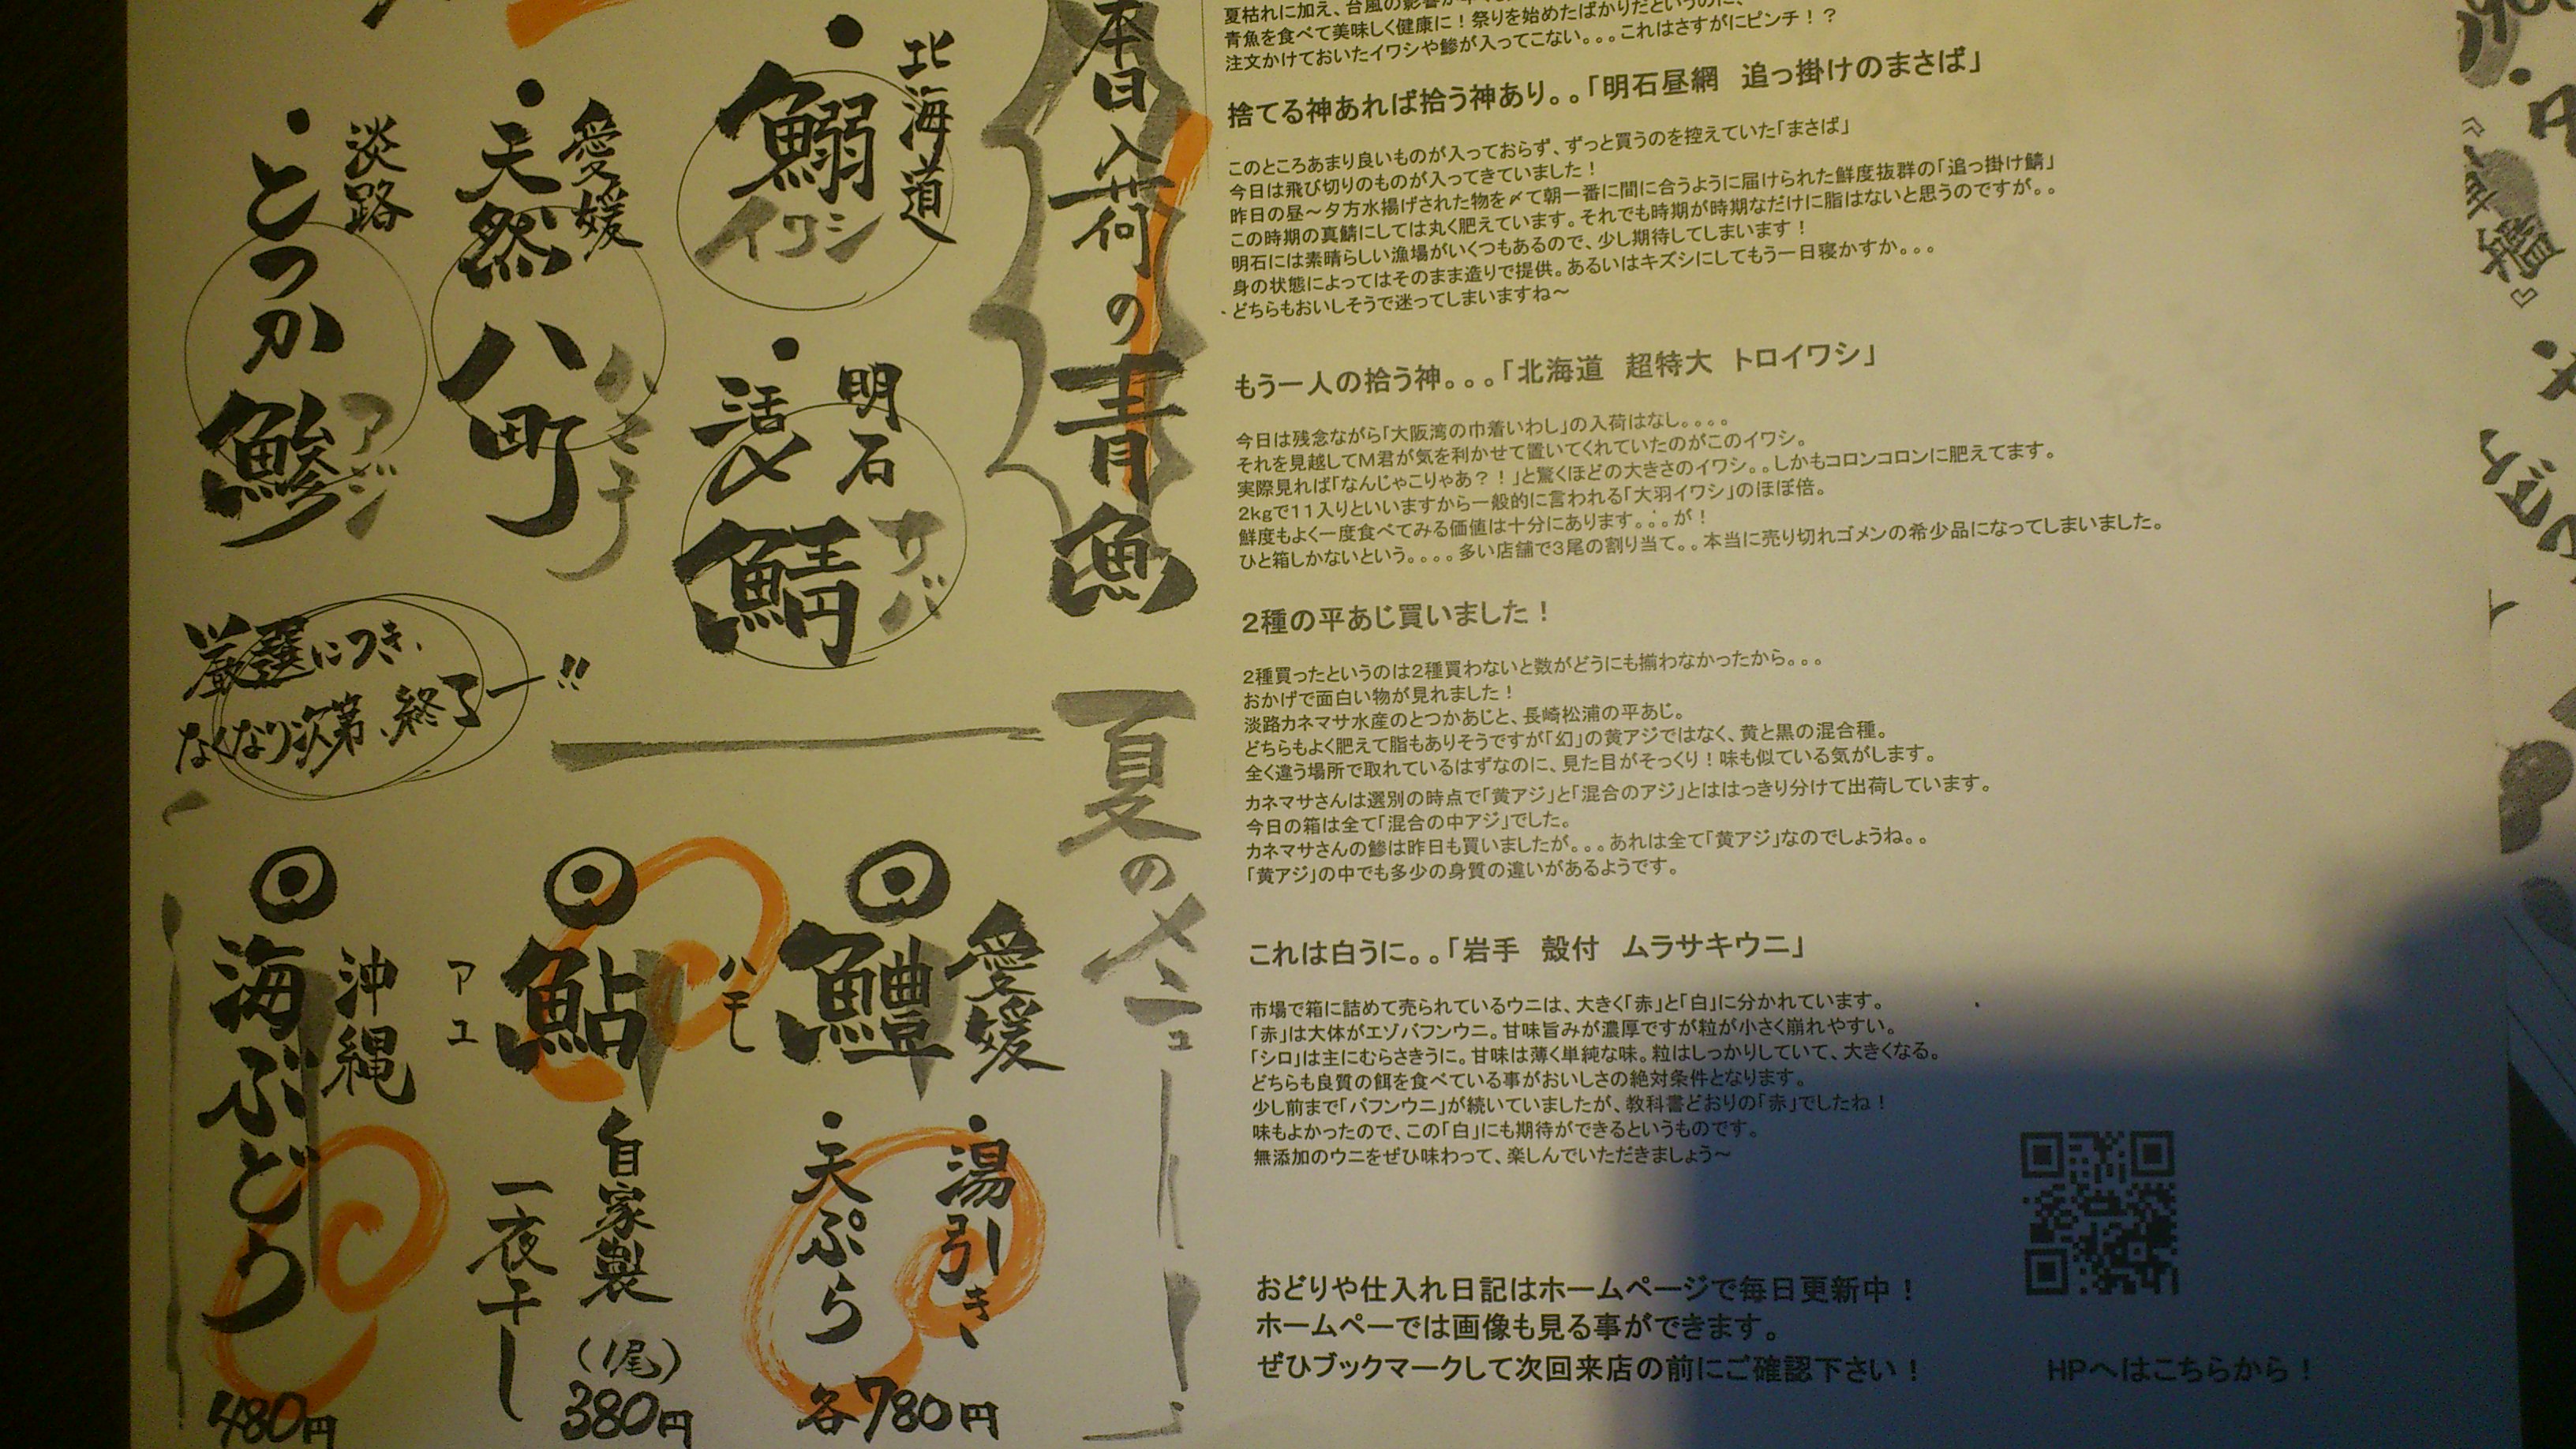 本日入荷の青魚
北海道
鰯
イワシ
明石
活〆
鯖
サバ
愛媛
天然
八町
ハマチ
淡路
とつか
鯵
アジ
厳選につき、
なくなり次第、終了ー!!
夏のメニュー
愛媛
鱧
ハモ
・湯引き
・天ぷら
各780円
鮎
アユ
自家製
一夜干し
(1尾)
380円
沖縄
海ぶどう
480円
青魚を食べて美味しく健康に！祭りを始めたばかりだというのに、
注文かけておいたイワシや鯵が入ってこない。。。これはさすがにピンチ！？
捨てる神あれば拾う神あり。。「明石昼網　追っ掛けのまさば」
このところあまり良いものが入っておらず、ずっと買うのを控えていた「まさば」
今日は飛び切りのものが入ってきていました！
昨日の昼～夕方水揚げされた物を〆て朝一番に間に合うように届けられた鮮度抜群の「追っ掛け鯖」
この時期の真鯖にしては丸く肥えています。それでも時期が時期なだけに脂はないと思うのですが。。
明石には素晴らしい漁場がいくつもあるので、少し期待してしまいます！
身の状態によってはそのまま造りで提供。あるいはキズシにしてもう一日寝かすか。。。
どちらもおいしそうで迷ってしまいますね～
もう一人の拾う神。。。「北海道　超特大　トロイワシ」
今日は残念ながら「大阪湾の巾着いわし」の入荷はなし。。。。
それを見越してM君が気を利かせて置いてくれていたのがこのイワシ。
実際見れば「なんじゃこりゃあ？！」と驚くほどの大きさのイワシ。。しかもコロンコロンに肥えてます。
2kgで11入りといいますから一般的に言われる「大羽イワシ」のほぼ倍。
鮮度もよく一度食べてみる価値は十分にあります。。。が！
ひと箱しかないという。。。。多い店舗で3尾の割り当て。。本当に売り切れゴメンの希少品になってしまいました。
2種の平あじ買いました！
2種買ったというのは2種買わないと数がどうにも揃わなかったから。。。
おかげで面白い物が見れました！
淡路カネマサ水産のとつかあじと、長崎松浦の平あじ。
どちらもよく肥えて脂もありそうですが「幻」の黄アジではなく、黄と黒の混合種。
全く違う場所で取れているはずなのに、見た目がそっくり！味も似ている気がします。
カネマサさんは選別の時点で「黄アジ」と「混合のアジ」とははっきり分けて出荷しています。
今日の箱は全て「混合の中アジ」でした。
カネマサさんの鯵は昨日も買いましたが。。。あれは全て「黄アジ」なのでしょうね。。
「黄アジ」の中でも多少の身質の違いがあるようです。
これは白うに。。「岩手　殻付　ムラサキウニ」
市場で箱に詰めて売られているウニは、大きく「赤」と「白」に分かれています。
「赤」は大体がエゾバフンウニ。甘味旨みが濃厚ですが粒が小さく崩れやすい。
「シロ」は主にむらさきうに。甘味は薄く単純な味。粒はしっかりしていて、大きくなる。
どちらも良質の餌を食べている事がおいしさの絶対条件となります。
少し前まで「バフンウニ」が続いていましたが、教科書どおりの「赤」でしたね！
味もよかったので、この「白」にも期待ができるというものです。
無添加のウニをぜひ味わって、楽しんでいただきましょう～
おどりや仕入れ日記はホームページで毎日更新中！
ホームペーでは画像も見る事ができます。
ぜひブックマークして次回来店の前にご確認下さい！
HPへはこちらから！